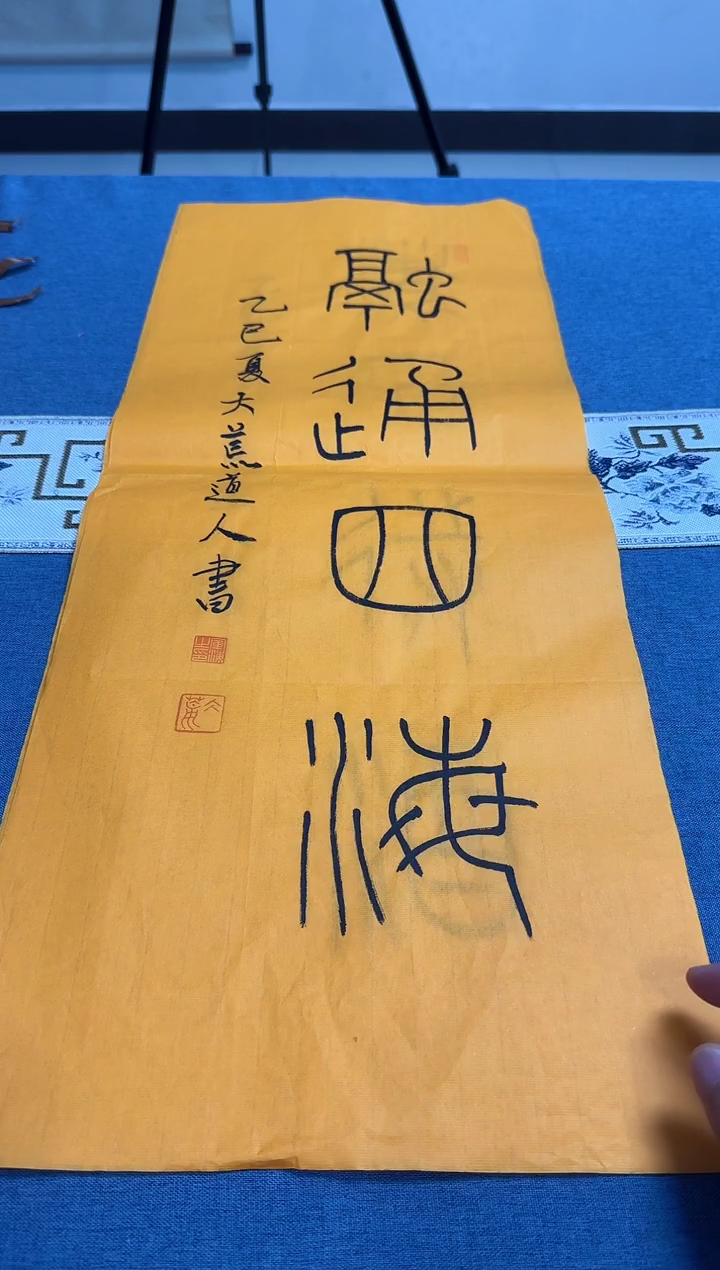 融通四海
乙巳夏大荒道人書